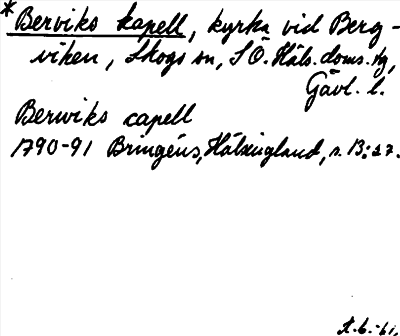 *Berviks kapell, kyrka vid Berg-
viken, Skogs sn, SÖ. Häls. doms.
Gävl. l.
Berwiks capell
1790-91 Bringéus, Hälsingland, s. 13: 27.